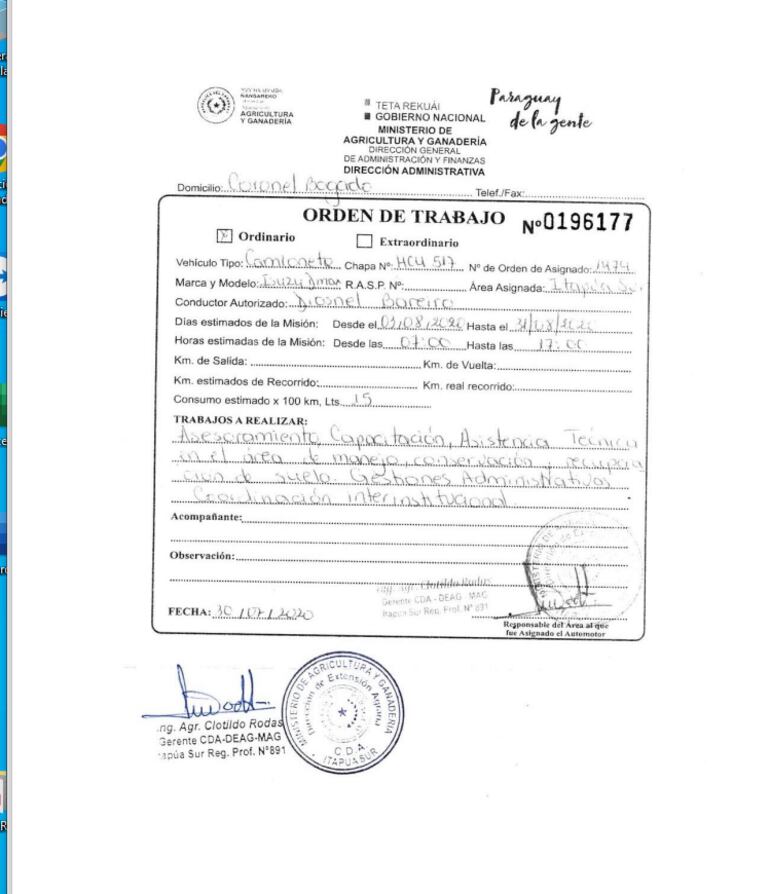 AGRICULTURA
Y GANADERÍA
TETA REKUÁI
GOBIERNO NACIONAL
Paraguay
de la gente
MINISTERIO DE
AGRICULTURA Y GANADERÍA
DIRECCIÓN GENERAL
DE ADMINISTRACIÓN Y FINANZAS
DIRECCIÓN ADMINISTRATIVA
Domicilio: Coronel Bogado Telef./Fax:
ORDEN DE TRABAJO Nº 0196177
Ordinario Extraordinario
Vehículo Tipo: Camioneta Chapa Nº: HCU 517 Nº de Orden de Asignado: 1474
Marca y Modelo: Isuzu Dmax R.A.S.P. Nº: Área Asignada: Itapúa Sur
Conductor Autorizado: Diosnel Bareiro
Días estimados de la Misión: Desde el 03/08/2020 Hasta el 31/08/2020
Horas estimadas de la Misión: Desde las 07:00 Hasta las 17:00
Km. de Salida: Km. de Vuelta:
Km. estimados de Recorrido: Km. real recorrido:
Consumo estimado x 100 km, Lts. 15
TRABAJOS A REALIZAR:
Asesoramiento, Capacitación, Asistencia Técnica
en el área de manejo, conservación y recupera
ción de suelo. Gestiones Administrativas
Coordinación interinstitucional
Acompañante:
Observación:
Ing. Agr. Clotildo Rodas
Gerente CDA - DEAG - MAG
Itapúa Sur Reg. Prof. N° 891
FECHA: 30/07/2020
Responsable del Área al que
fue Asignado el Automotor
Ing. Agr. Clotildo Rodas
Gerente CDA-DEAG-MAG
Itapúa Sur Reg. Prof. N°891
MINISTERIO DE AGRICULTURA Y GANADERÍA
Dirección de Extensión Agraria
C.D.A
ITAPUA SUR